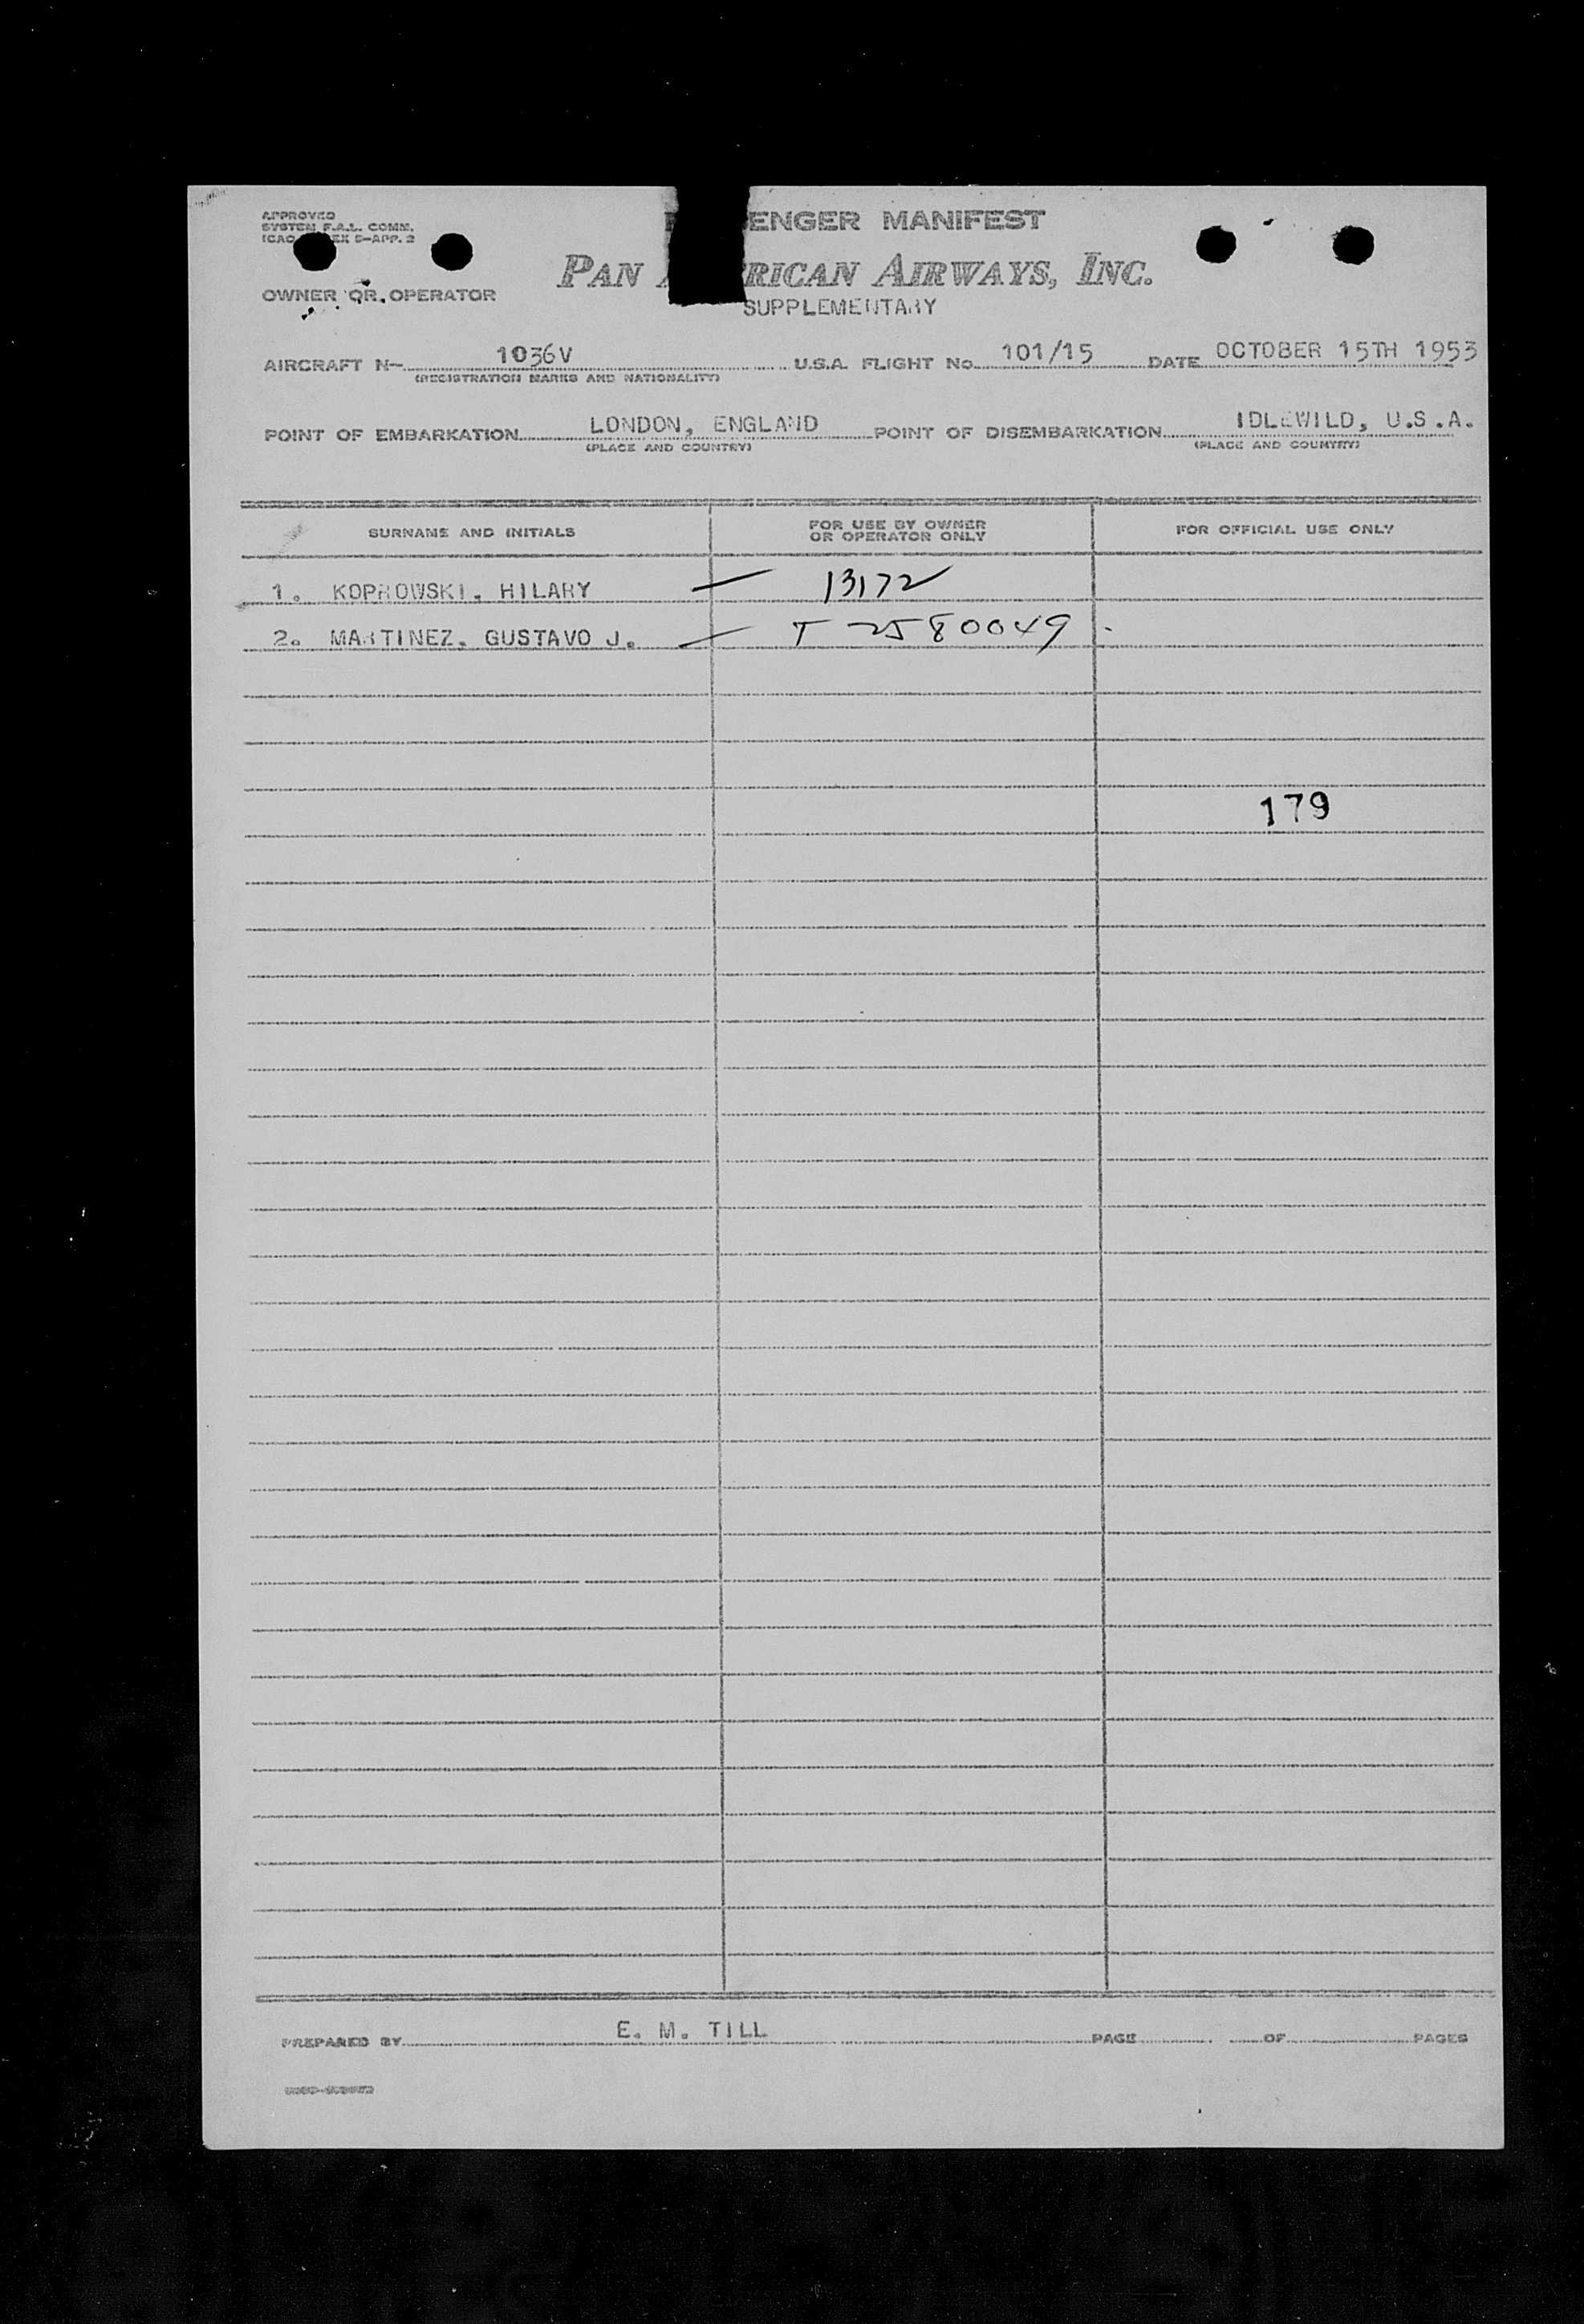 APPROVED
SYSTEM F.A.L. COMM.
ICAO EX 9-APP. 2
ENGER MANIFEST
PAN RICAN AIRWAYS, INC.
OWNER OR OPERATOR
SUPPLEMENTARY
AIRCRAFT N- 1036V U.S.A. FLIGHT No. 101/15 DATE OCTOBER 15TH 1953
(REGISTRATION MARKS AND NATIONALITY)
POINT OF EMBARKATION LONDON, ENGLAND POINT OF DISEMBARKATION IDLEWILD, U.S.A.
(PLACE AND COUNTRY) (PLACE AND COUNTRY)
SURNAME AND INITIALS FOR USE BY OWNER OR OPERATOR ONLY FOR OFFICIAL USE ONLY
1. KOPROWSKI, HILARY — 13172
2. MARTINEZ, GUSTAVO J. — T 2580049
179
PREPARED BY E. M. TILL PAGE OF PAGES